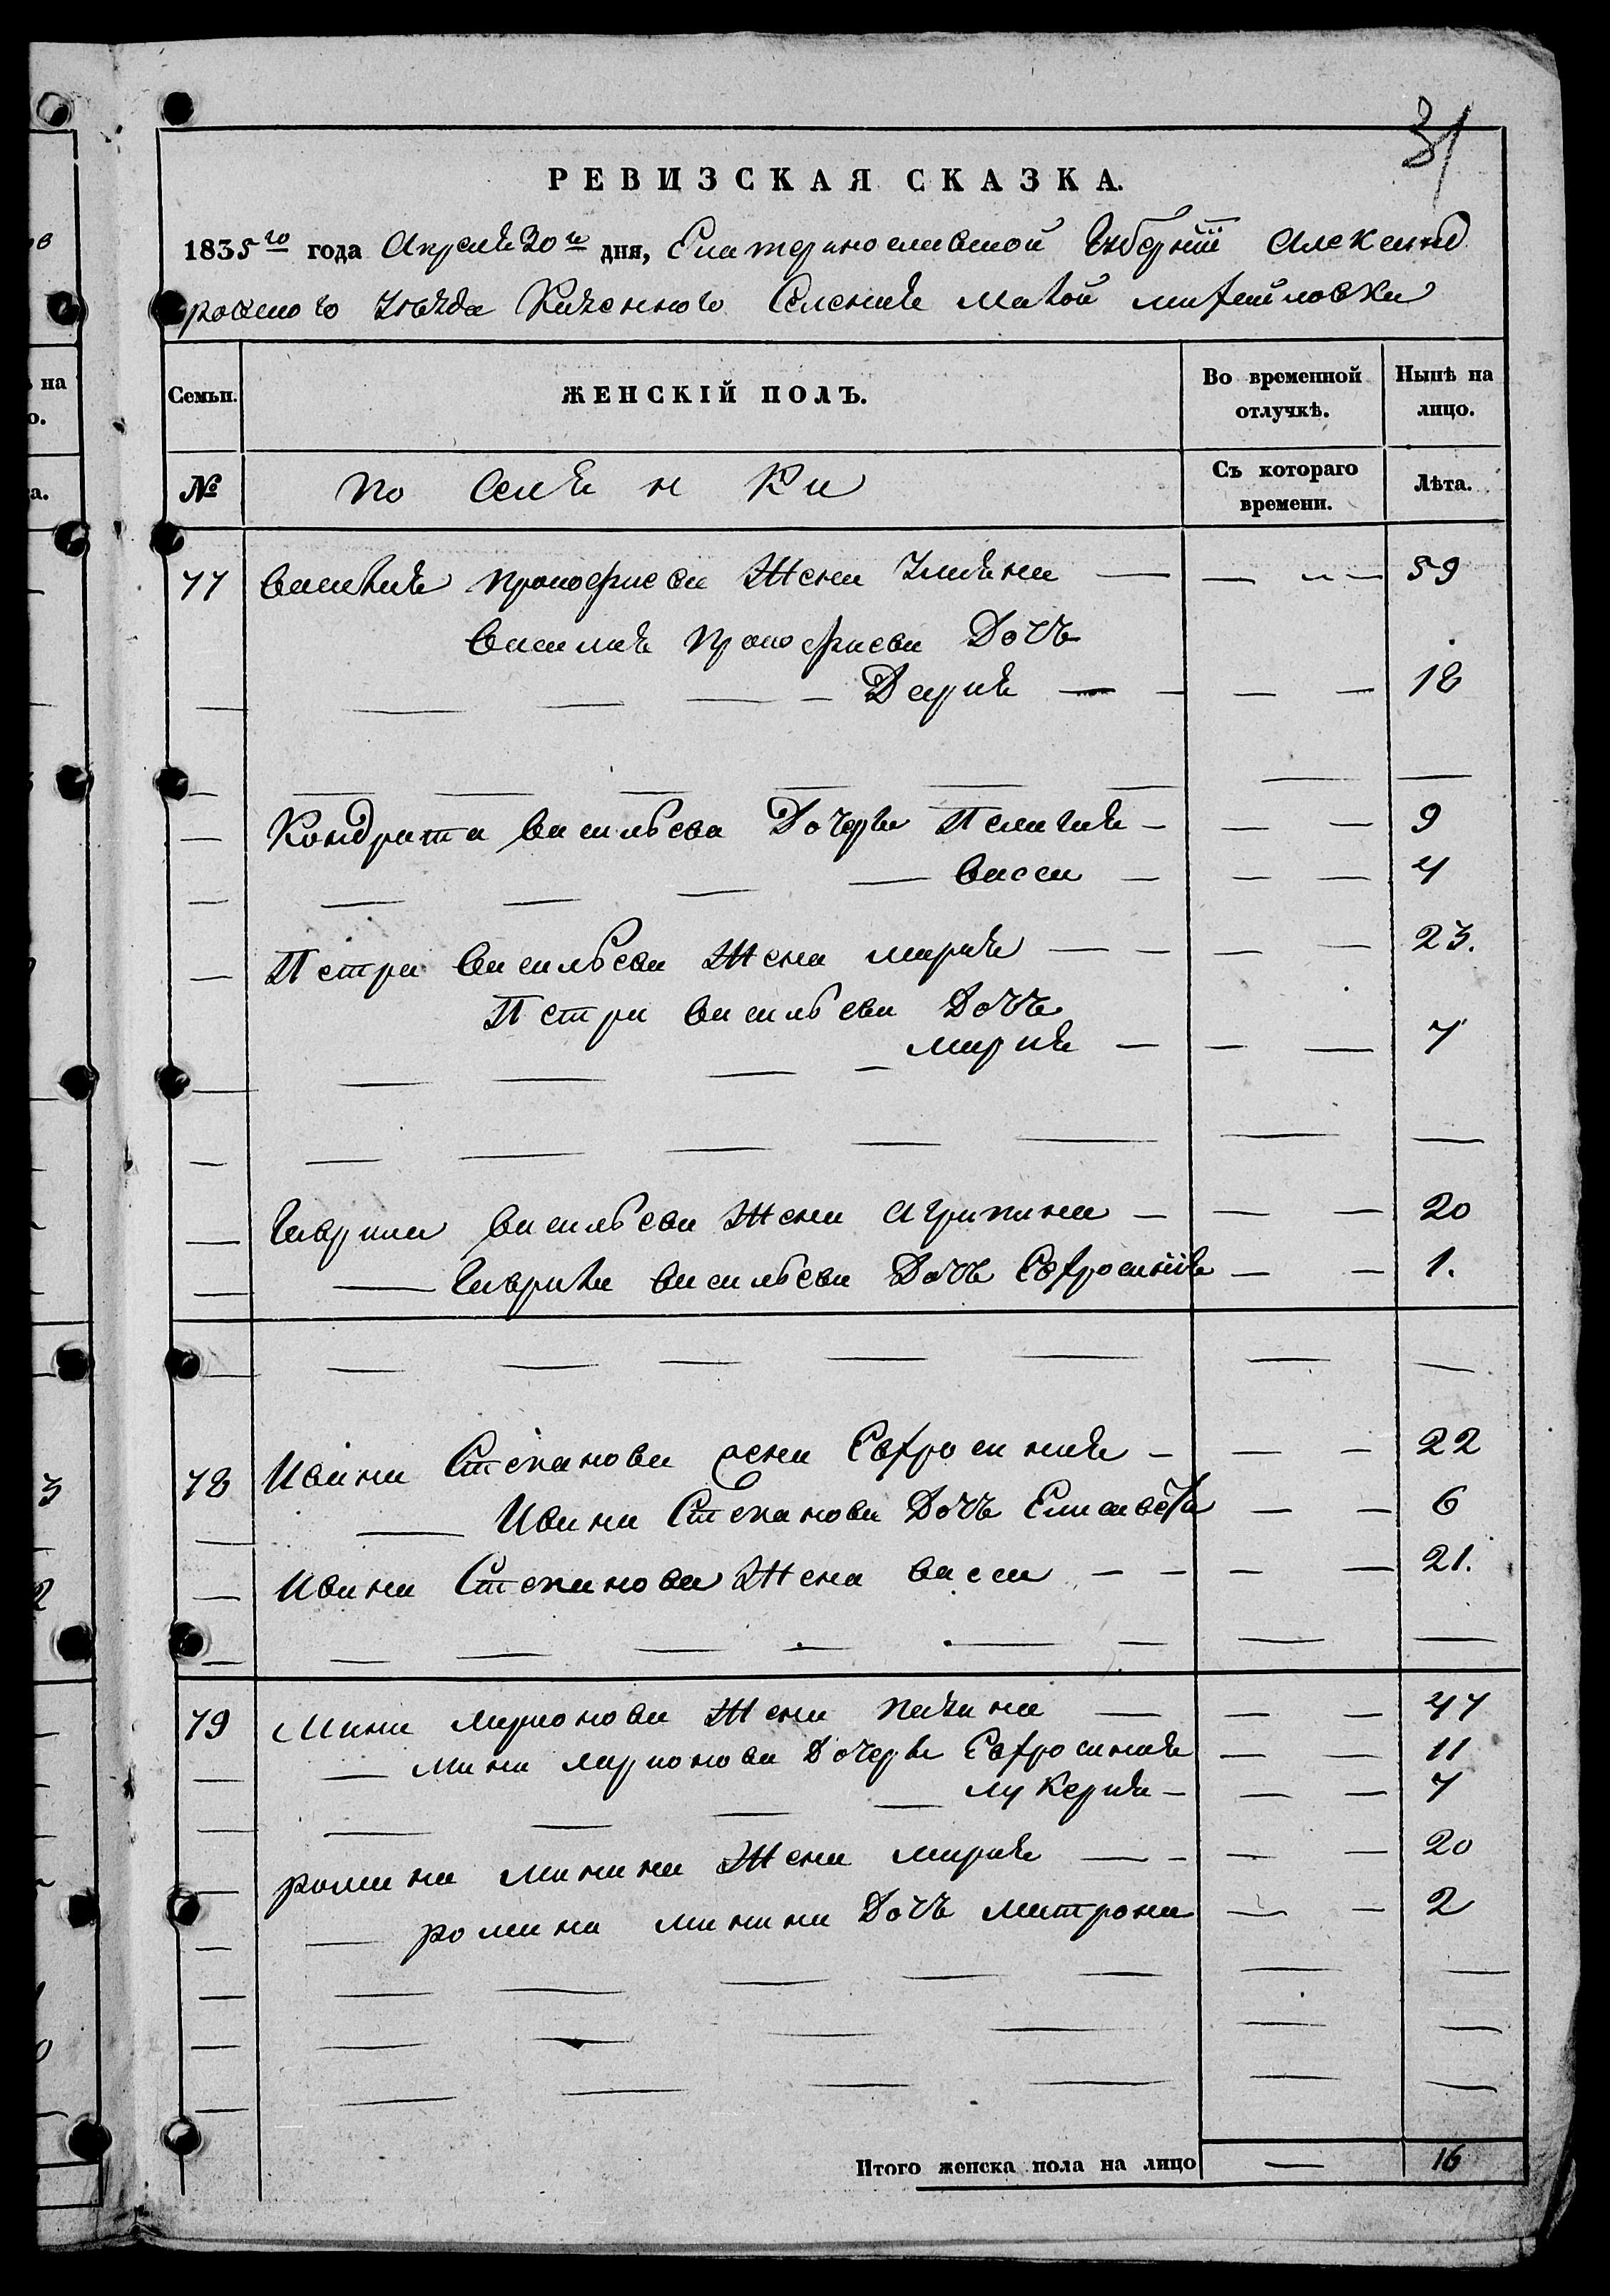 31
РЕВИЗСКАЯ СКАЗКА.
1835го года Апреля 30го дня, Екатеринославской Губернiи Александ
ровского Уезда Казенного Селения Малой михайловки
Семьи.
ЖЕНСКІЙ ПОЛЪ.
Во временной отлучкѣ.
Нынѣ на лицо.
№
Поселянки
Съ котораго времени.
Лѣта.
77 Василия прокофиева Жена Ульяна — — — 59
Василия прокофиева Дочь
Дария — — — 18
Кондрата васильева Дочери Пелагия — — — 9
васса — — — 4
Петра васильева Жена мария — — — 23.
Петра васильева Дочь
мария — — — 7
Гаврила васильева Жена Агрипина — — — 20
Гаврила васильева Дочь Евфросинiя — — 1.
78 Ивана Степанова жена Евфросиния — — — 22
Ивана Степанова Дочь Елисавета — — 6
Ивана Степанова Жена васса — — — 21.
79 Мина ларионова Жена — — — 47
мина ларионова Дочери Евфросиния — — 11
лукерия — — — 7
романа минина Жена мария — — — 20
романа минина Дочь матрона — — 2
Итого женска пола на лицо — 16
на
о.
а.
3
2